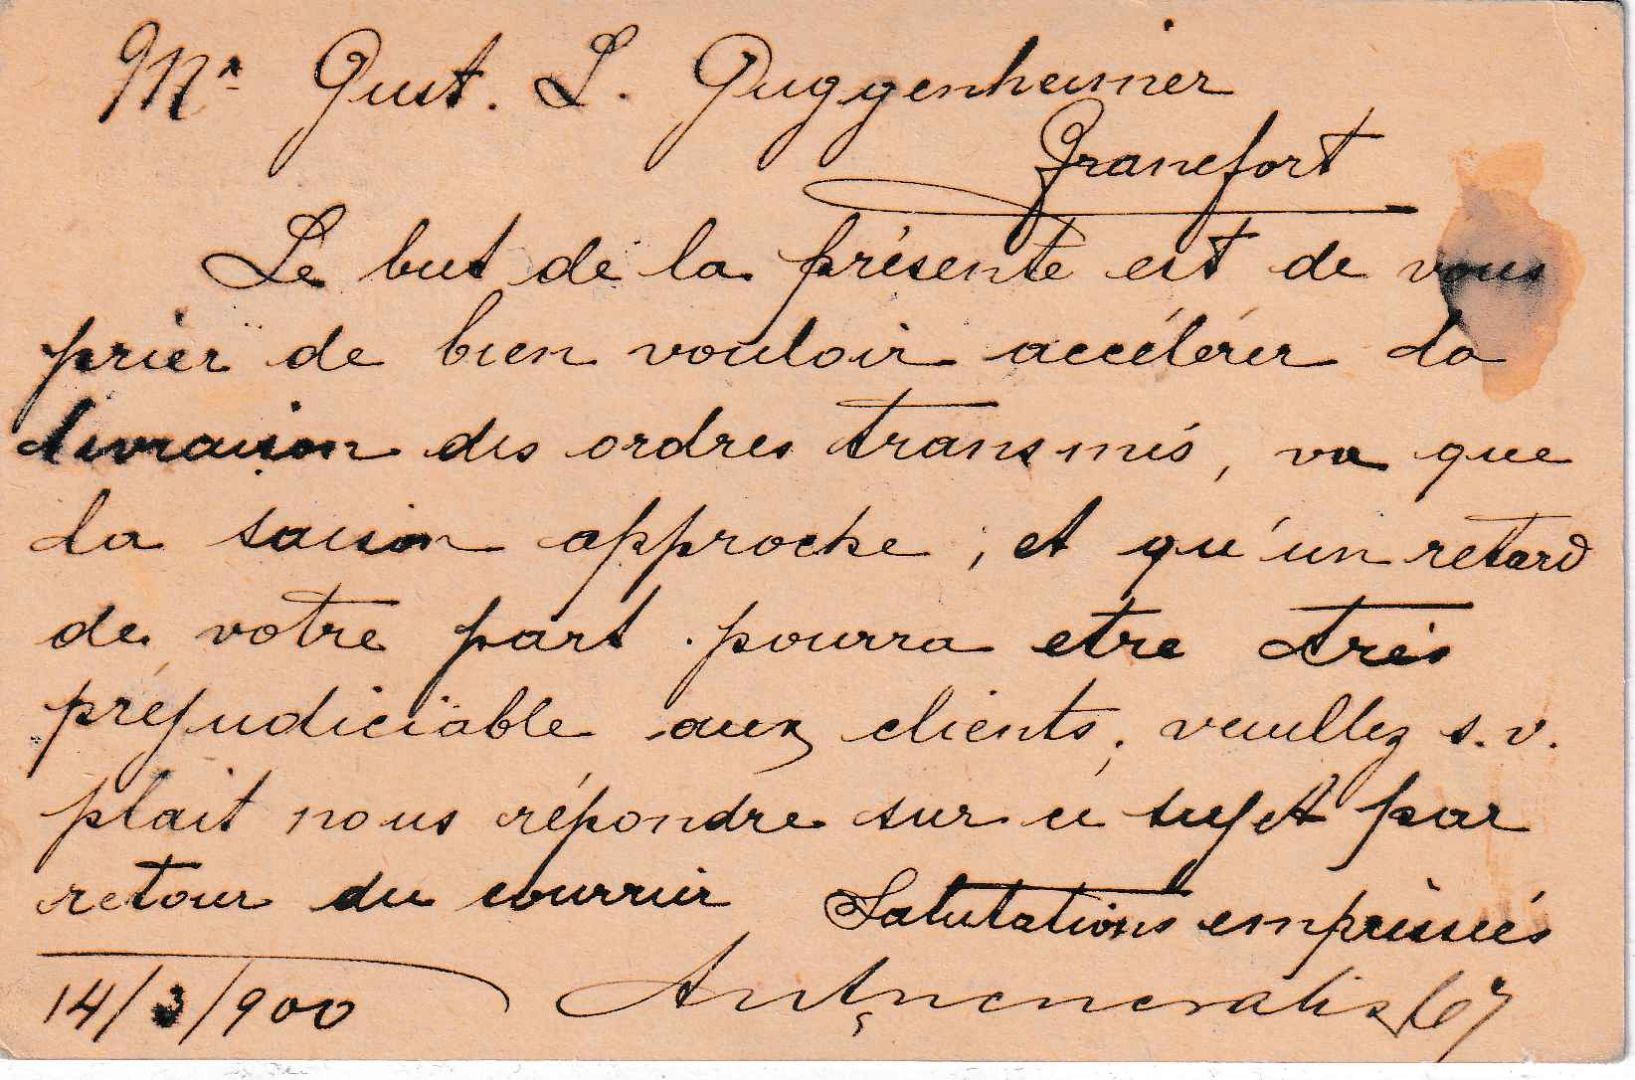 Mr Gust. L. Guggenheimer
Francfort
Le but de la présente est de vous
prier de bien vouloir accélérer la
livraison des ordres transmis, vu que
la saison approche, et qu'un retard
de votre part pourra etre très
préjudiciable aux clients, veuillez s.v.
plait nous répondre sur ce sujet par
retour du courrier Salutations empressées
14/3/900